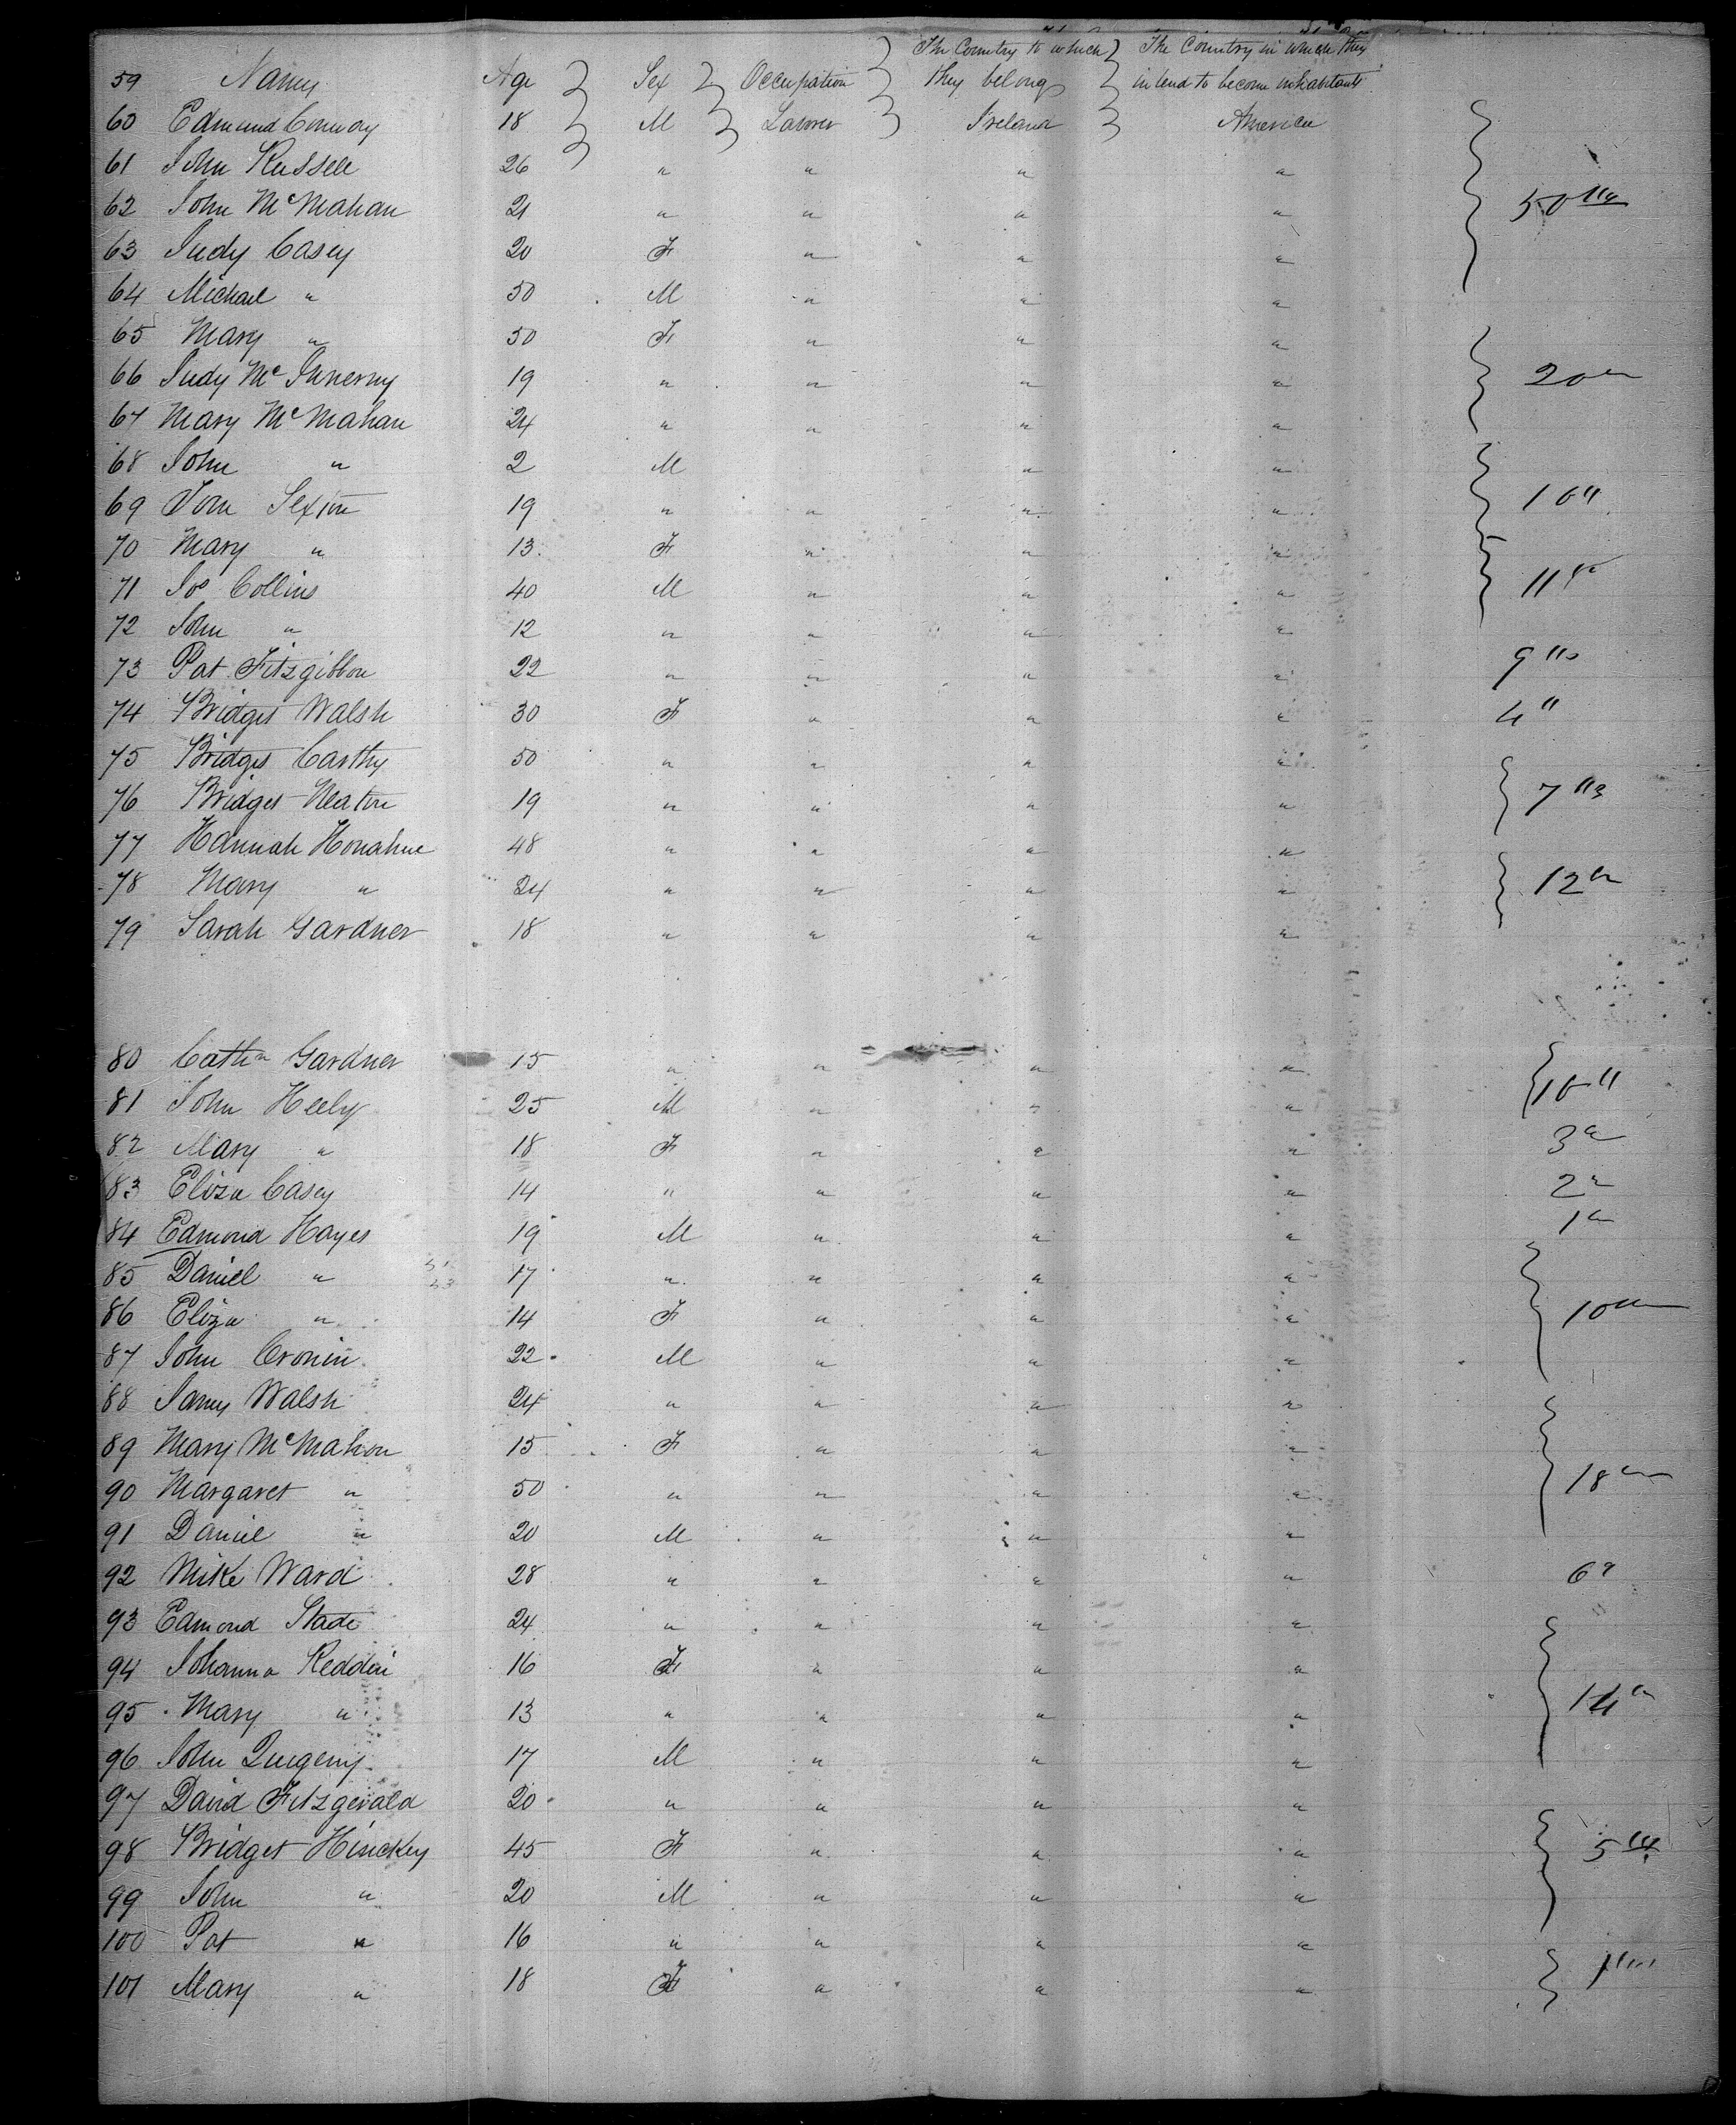 The Country to which The Country in which they
59 Names Age Sex Occupation they belong intend to become inhabitants
60 Edmund Conway 18 M Laborer Ireland America
61 John Russell 26 " " " "
62 John McMahan 21 " " " " 50
63 Judy Casey 20 F " " "
64 Michael " 50 M " " "
65 Mary " 50 F " " "
66 Judy McInnerny 19 " " " " 20
67 Mary McMahan 24 " " " "
68 John " 2 M " "
69 Tom Sexton 19 " " " " 10 "
70 Mary " 13 F " " "
71 Jos Collins 40 M " " " 11
72 John " 12 " " " "
73 Pat Fitzgibbon 22 " " " " 9
74 Bridget Walsh 30 F " " " 4 "
75 Bridget Carthy 50 " " " "
76 Bridget 19 " " " " 7
77 Hannah Honahue 48 " " " "
78 Mary " 24 " " " " 12 "
79 Sarah Gardner 18 " " " "
80 Cathn Gardner 15 " " " "
81 John Heely 25 M " " " 10 "
82 Mary " 18 F " " " 3 "
83 Eliza Casey 14 " " " " 2 "
84 Edmond Hayes 19 M " " " 1 "
85 Daniel " 17 " " " "
86 Eliza " 14 F " " " 10
87 John Cronin 22 M " " "
88 James Walsh 24 " " " "
89 Mary McMahon 15 F " " "
90 Margaret " 50 " " " " 18
91 Daniel " 20 M " " "
92 Mike Ward 28 " " " " 6 "
93 Edmond Slade 24 " " " "
94 Johanna Reddin 16 F " " "
95 Mary " 13 " " " " 14 "
96 John 17 M " " "
97 David Fitzgerald 20 " " " "
98 Bridget Hinckey 45 F " " " 5
99 John " 20 M " " "
100 Pat " 16 " " " "
101 Mary " 18 F " " "